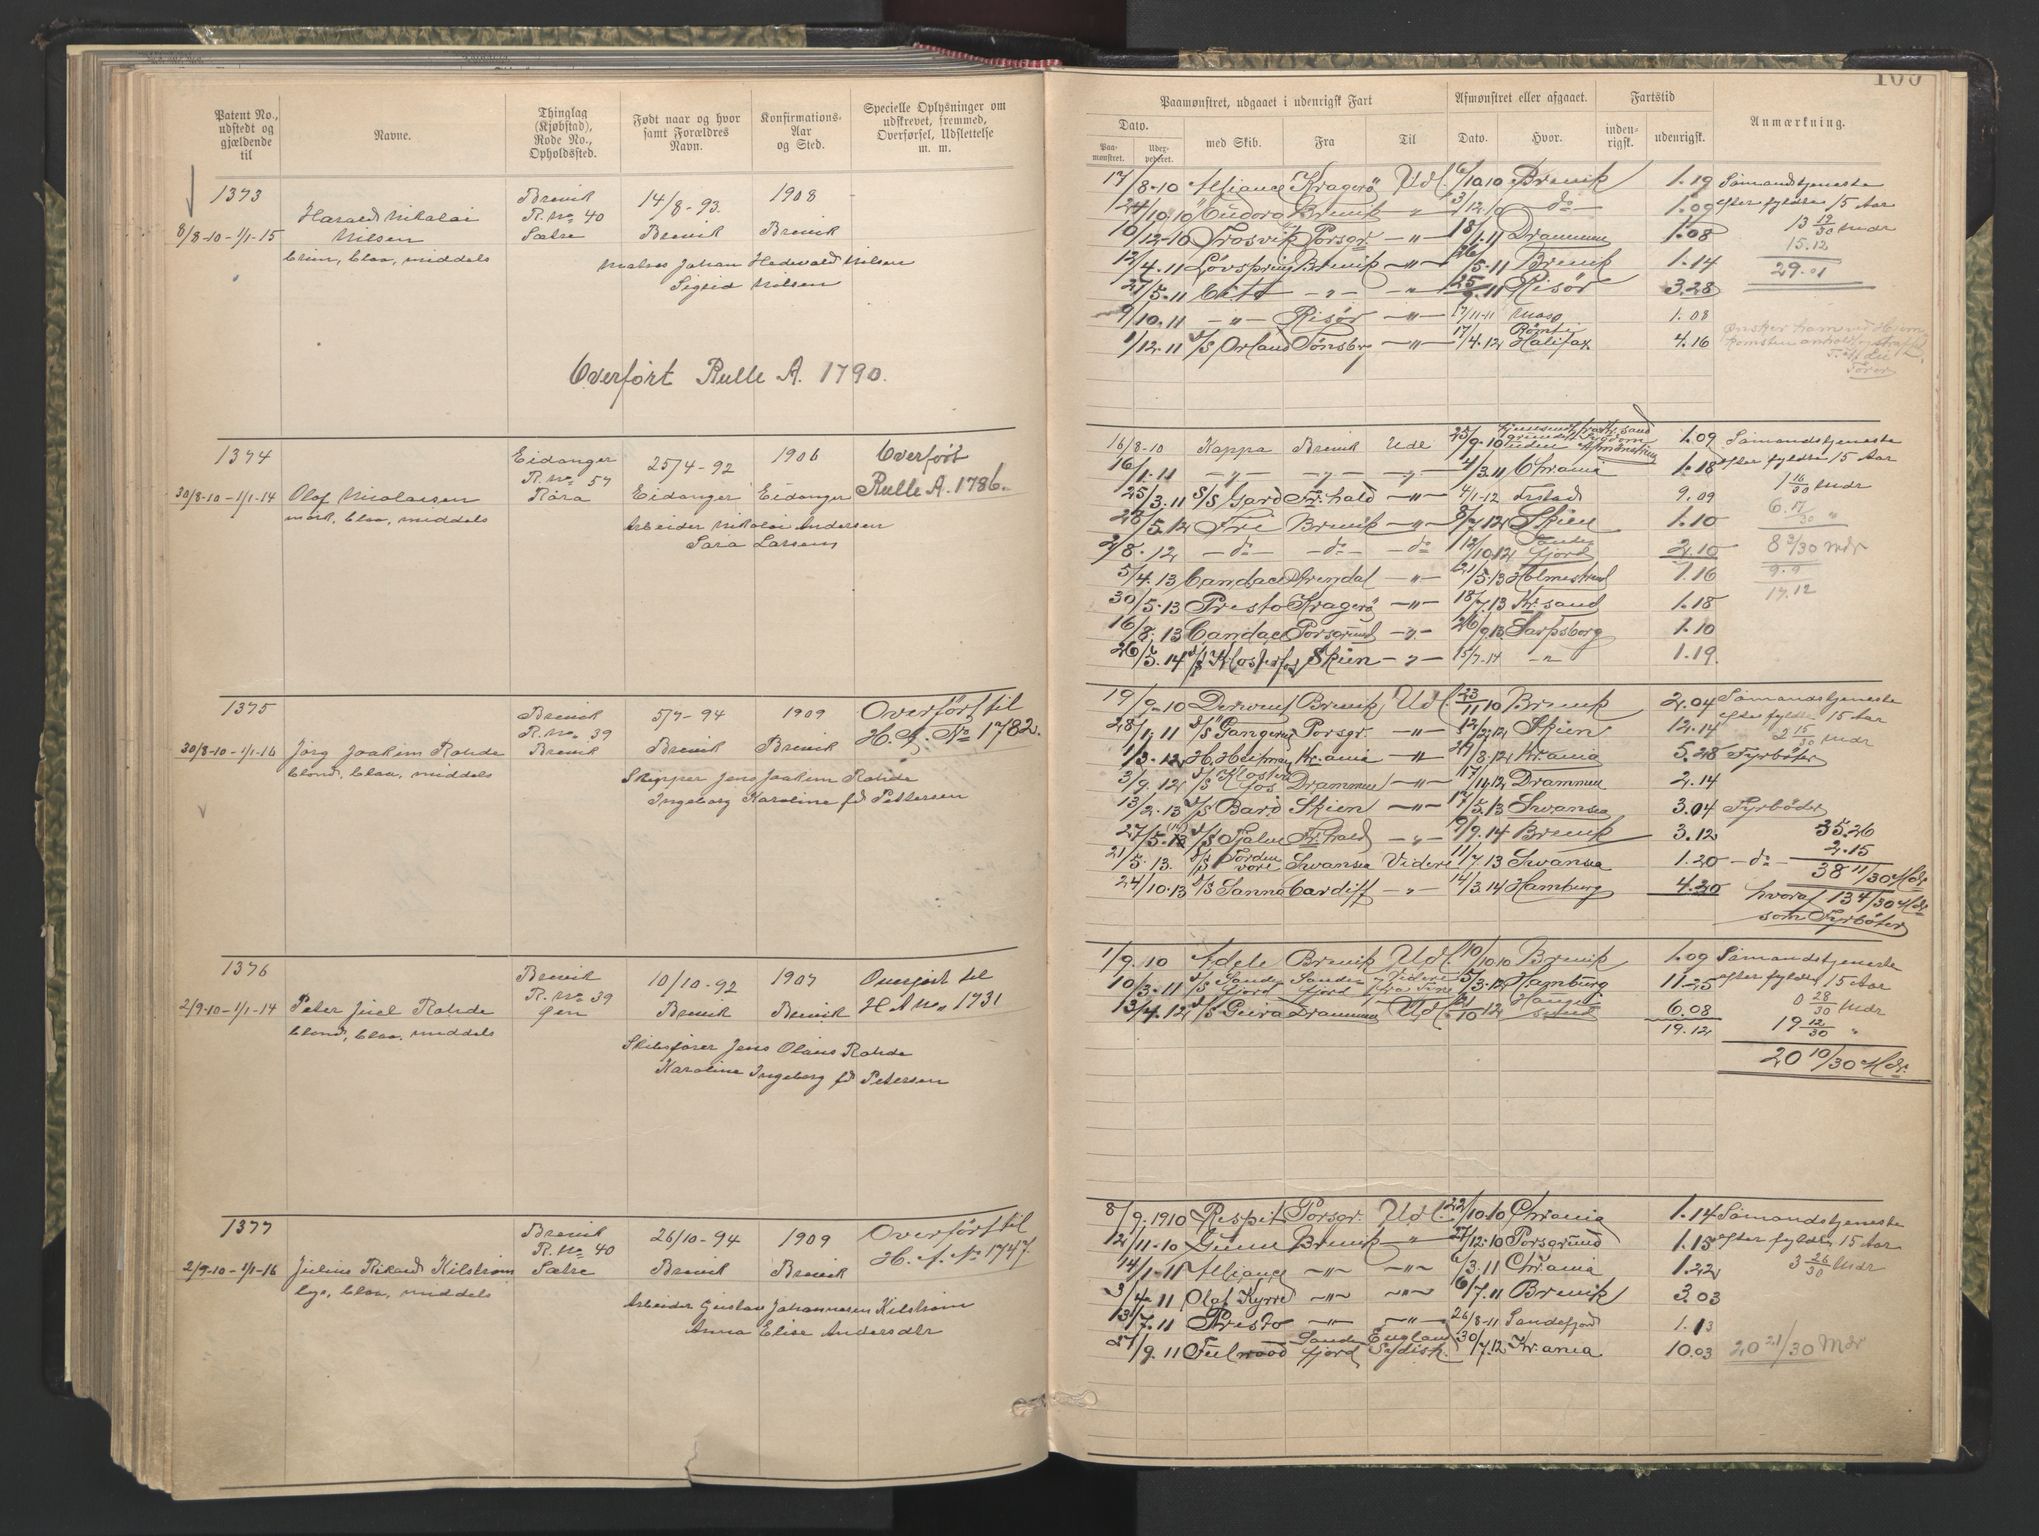 Patent No., udstedt og gjældende til
Navne.
Thinglag (Kjøbstad), Rode No., Opholdssted.
Født naar og hvor samt Forældres Navn.
Konfirmations-Aar og Sted.
Specielle Oplysninger om udskrevet, fremmed, Overførsel, Udslettelse m. m.
1373
8/8-10-1/1-15
Harald Nikolai
Nilsen
blaa, middels
Brevik
R. No 40
Sætre
14/8-93.
Brevik
1908
Brevik
Johan Hedevald Nilsen
Sigrid Nilsen
Overført Rulle A. 1790.
1374
30/8-10-1/1-14
Olaf Nicolaisen
mørk, blaa, middels
Eidanger
R. No 57
Røra
25/4-92
Eidanger
1906
Eidanger
Overført
Rulle A. 1786.
Arbeider Nikolai Andersen
Sara Larsen
1375
30/8-10-1/1-16
Jørg Joakim Rohde
blond, blaa, middels
Brevik
R. No 39
Brevik
5/7-94
Brevik
1909
Brevik
Overført til
H. A. No 1782.
Skipper Jens Joakim Rohde
Ingeborg Karoline fd Pettersen
1376
2/9-10-1/1-14
Peter Juel Rohde
blond, blaa, middels
Brevik
R. No 39
Øen
10/10-92
Brevik
1907
Brevik
Overført til
H A No 1731
Skibsfører Jens Olaus Rohde
Karoline Ingeborg fd Petersen
1377
2/9-10-1/1-16
Julius Rikard Kilstrøm
lys, blaa, middels
Brevik
R. No 40
Sætre
26/10-94
Brevik
1909
Brevik
Overført til
H. A. No 1747.
Arbeider Gustav Johannesen Kilstrøm
Anna Elise Andersdtr
Paamønstret, udgaaet i udenrigsk Fart
Afmønstret eller afgaaet.
Fartstid
Anmærkning.
Dato.
Paamønstret.
Udexpederet.
med Skib.
Fra
Til
Dato.
Hvor.
indenrigsk.
udenrigsk.
17/8-10 Alliance Kragerø Udl. 6/10.10 Brevik 1.19 Sømandstjeneste
24/10.10 Eudora Brevik -"- 3/12.10 -do- 1.09 efter fyldte 15 Aar
10/12-10 Frosvik Porsgr -"- 18/1.11 Drammen 1.08 13 19/30 Mdr
15.12
12/4.11 Løvspring Brevik -"- 26/5-11 Brevik 1.14 29.01
27/5-11 -"- -"- 25/9.11 Risør 3.28
9/10.11 -"- Risør -"- 17/11-11 1.08
1/12.11 D/S Orland Tønsberg -"- 17/4.12 Halifax 4.16
16/8-10 Kappa Brevik Udl 25/9.10 1.09 Sømandstjeneste
16/1-11 -"- -"- -"- 4/3.11 Chrania 1.18 efter fyldte 15 Aar
1 16/30 Mdr
25/3.11 S/S Gard Fr.hald -"- 4/1-12 9.09
6.17/30 "
28/5.12 Fri Brevik -"- 8/7.12 Skien 1.10
2/8.12 -do- -do- -do 12/10.12 Sandefjord 2.10 8 3/30 Mdr
9.9
5/4.13 Candace Arendal -"- 21/5.13 Holmestrand 1.16
17.12
30/5-13 Presto Kragerø -"- 18/7.13 Kr.sand 1.18
16/8.13 Candace Porsgrund -"- 26/9.13 Sarpsborg 1.10
26/5.14 D/S Klosterfos Skien -"- 15/7-14 -"- 1.19.
19/9-10 Derwent Brevik Udl. 23/11.10 Brevik 2.04 Sømandstjeneste
28/1.11 Porsgr. -"- 12/2.12 Skien 12.14 efter fyldte 15 Aar
2 15/30 Mdr
1/3-12 H. Heitman Kr.ania -"- 29/8.12 Kr.ania 5.28 Fyrbøter
3/9.12 D/S Klosterfos Drammen -"- 17/11.12 Drammen 2.14
13/2.13 D/S Bard Skien -"- 17/5.13 Swansea 3.04 Fyrbøder
27/5.13 (14) D/S Fr.hald -"- 9/9.14 Brevik 3.12 35.26
2.15
21/5.13. D/S Tordenvore Swansea Videre 11/7.13 Swansea 1.20 -do- 38 11/30 Mdr
24/10.13 D/S Sanna Cardiff -"- 14/3.14 Hamburg 4.20 hvoraf 13 4/30 Mdr
som Fyrbøter
1/9.10 Adele Brevik Udl. 10/10.10 Brevik 1.09 Sømandstjeneste
10/3-11 D/S Sandefjord Sandefjord Videre 5/3.12 Hamburg 11.25 efter fyldte 15 Aar
0 28/30 Mdr
13/4.12 D/S Geira Drammen Udl. 21/10 12 Haugesund 6.08
19.12 19 12/30 "
20 10/30 Mdr.
8/9.1910 Respit Porsgr. Udl. 22/10.10 Chrania 1.14 Sømandstjeneste
12/11-10 Brevik " 27/12-10 Porsgrund 1.15 efter fyldte 15 Aar
14/1-11 Alliance -"- -"- 6/3.11 Chrania 1.22 3 26/30 Mdr
3/4-11 Olaf Kyrre -"- -"- 6/7.11 Brevik 3.03
13/7.11 Presto -"- -"- 26/8-11 Sandefjord 1.13
27/9.11 Fulwood Sandefjord England Sydish. 30/7.12 Kr.ania 10.03 20 21/30 Mdr